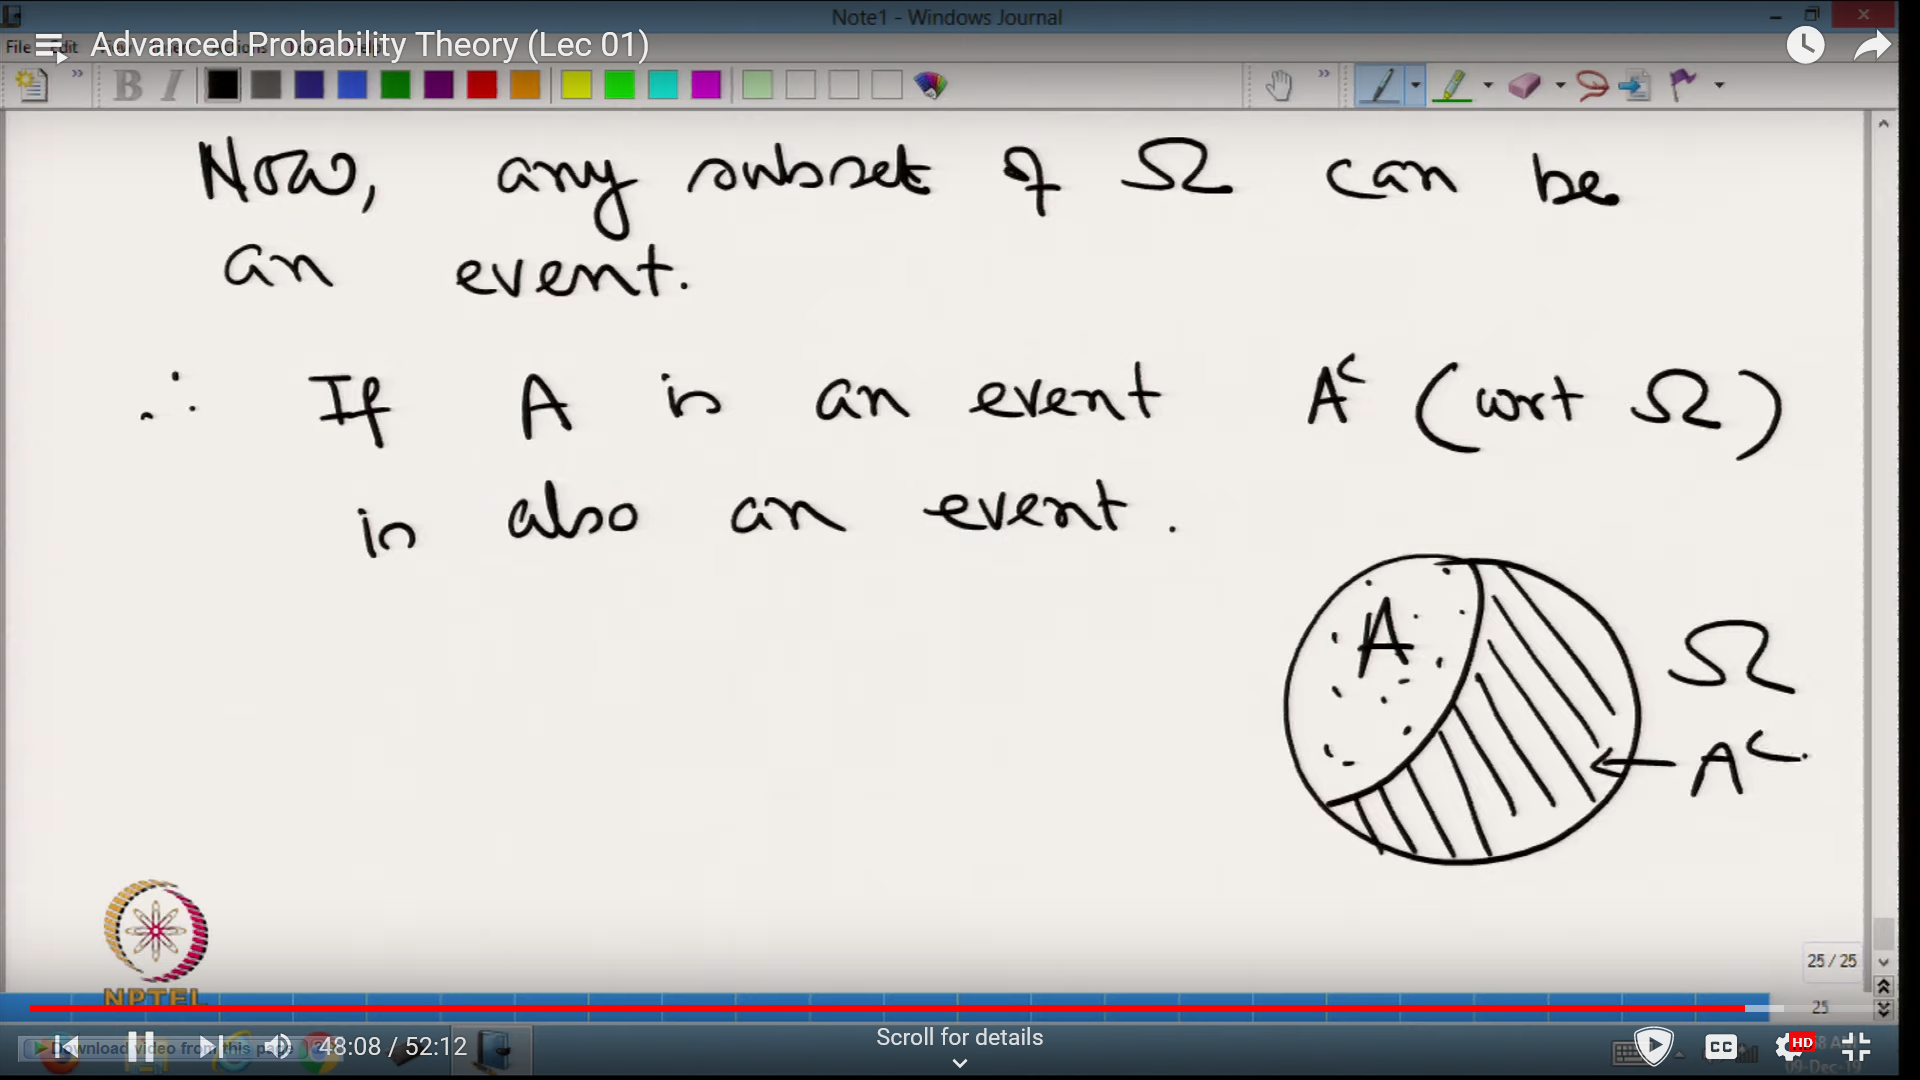 Note1 - Windows Journal
File Edit
Advanced Probability Theory (Lec 01)
B I
Now, any subset of Ω can be
an event.
∴ If A is an event Aᶜ (wrt Ω)
is also an event.
A
Ω
Aᶜ
NPTEL
25 / 25
25
Download video from this page
48:08 / 52:12
Scroll for details
CC
HD
09-Dec-19